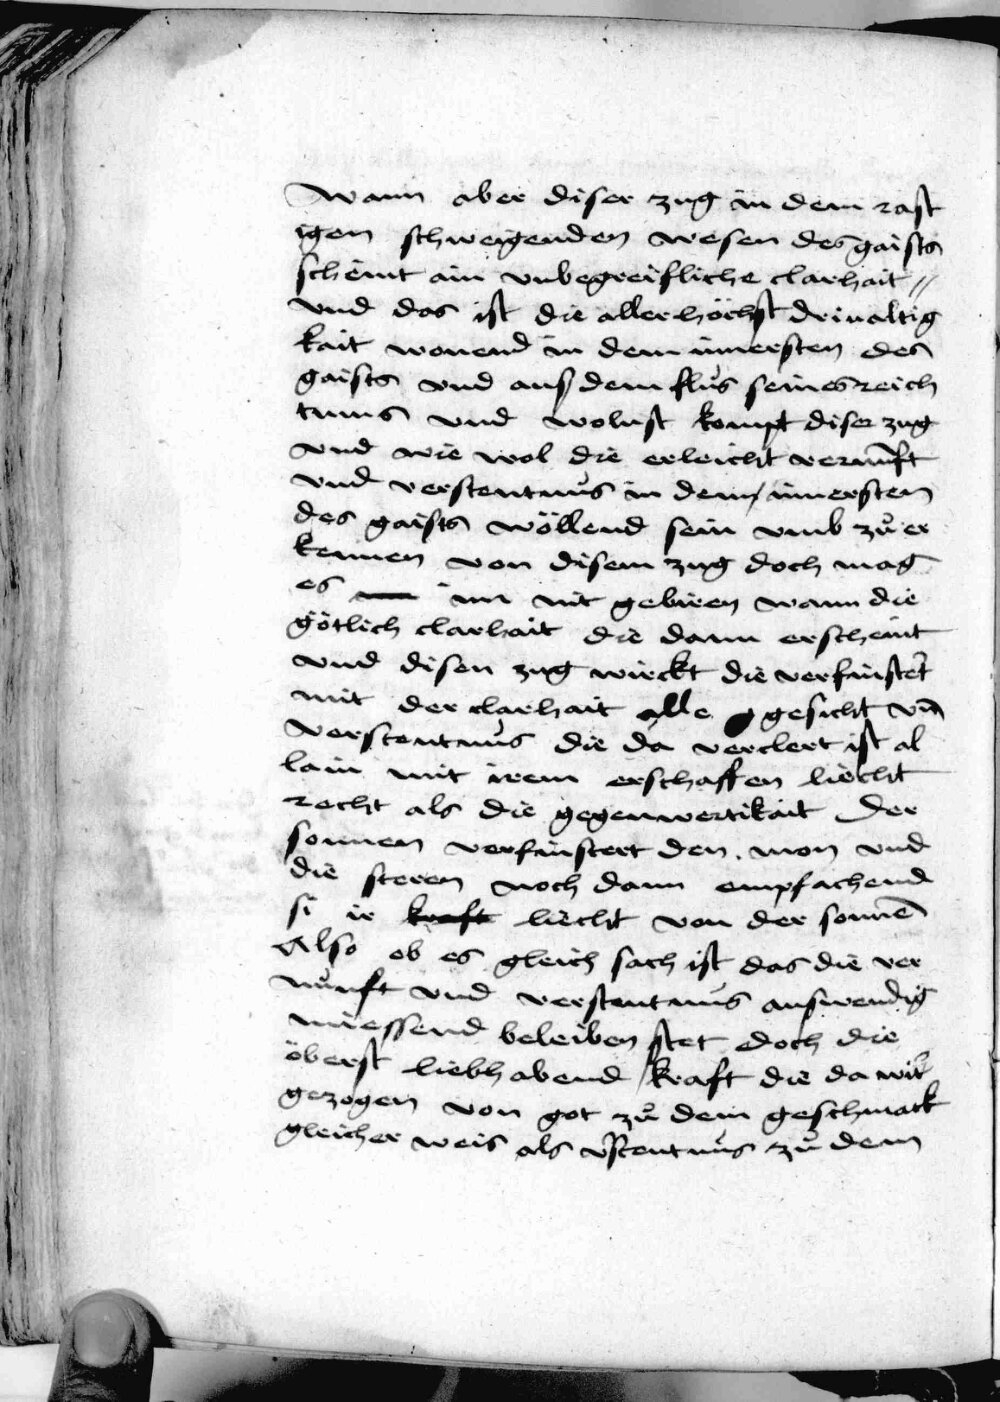 Wann aber diser zug in dem rast
igen schweigenden wesen des gaists
scheint ain vnbegreifliche clarhait //
vnd das ist die aller höchst driualtig
kait wonend in dem innersten des
gaists vnd auß dem flus seines reich
tums vnd wolust kompt diser zug
vnd wie wol die erleicht vernunft
vnd verstentnus in dem innersten
des gaists wöllend sein vmb zů er
kennen von disem zug doch mag
es im nit gebiren wann die
götlich clarhait die dann erscheint
vnd disen zug wirckt die verfinstert
mit der clarhait alle gesicht vn̄
verstentnus die da verclert ist al
lain mit irem erschaffen liecht
recht als die gegenwertikait der
sonnen verfinstert den mon vnd
die steren noch dann empfachend
si ir kraft liecht von der sonnē
Also ob es gleich sach ist das die ver
nunft vnd verstantnus auswendig
miessend beleiben stet doch die
öberst liebhabend kraft die da wirt
gezogen von got zů dem geschmack
gleicher weis als v̄stentnus zů dem